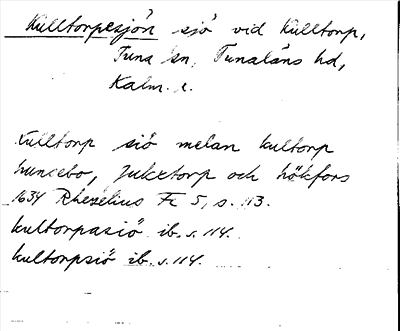 Kulltorpesjön sjö vid Kulltorp,
Tuna sn, Tunaläns hd,
Kalm. l.
Kulltorp siö melan kultorp
huncebo, Julextorp och hökfors
1634 Rhezelius Fc 5, s. 113.
kultorpasiö ib. s. 114.
kultorpsiö ib. s. 114.